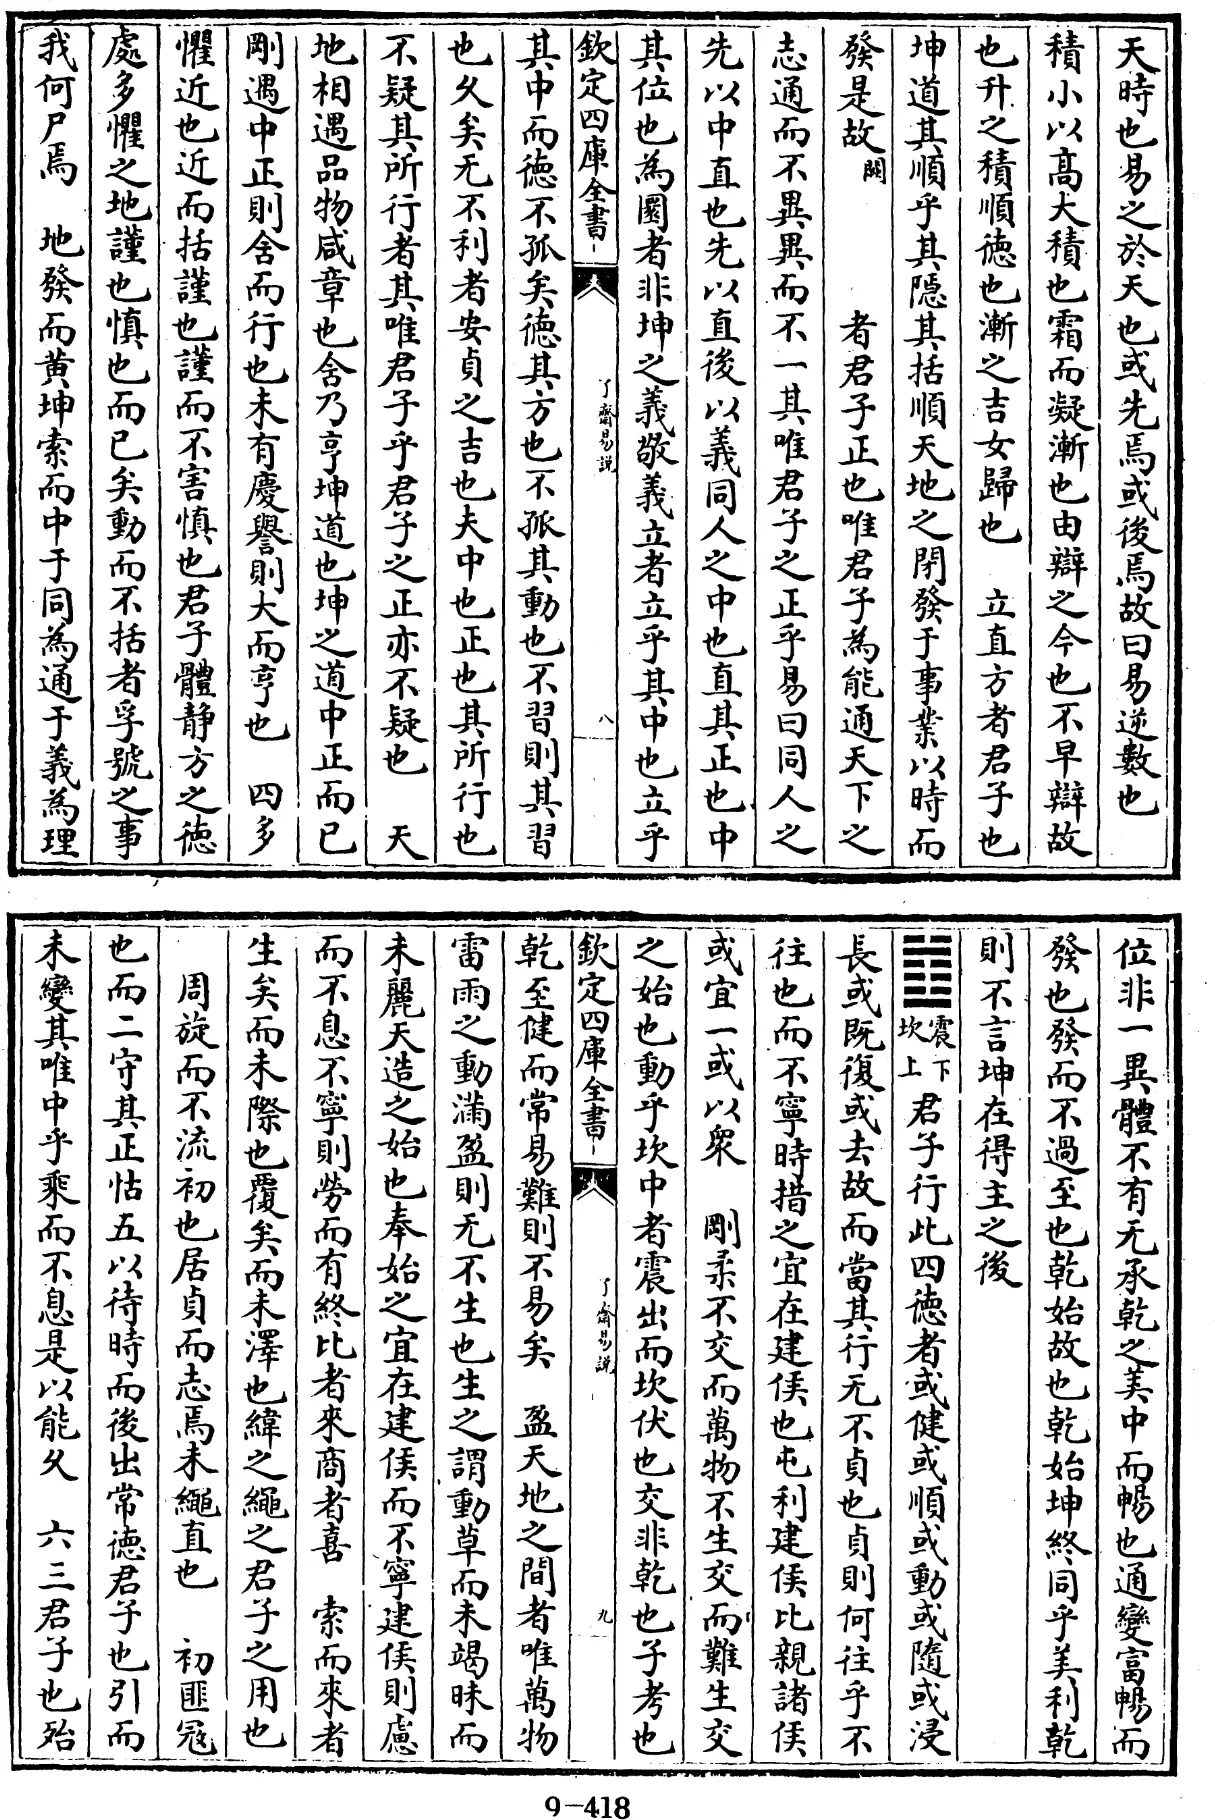 天時也易之於天也或先焉或後焉故曰易逆數也
積小以髙大積也霜而凝漸也由辯之今也不早辯故
也升之積順徳也漸之吉女歸也　立直方者君子也
坤道其順乎其隱其括順天地之閉發于事業以時而
發是故闕　　　　者君子正也唯君子為能通天下之
志通而不異異而不一其唯君子之正乎易曰同人之
先以中直也先以直後以義同人之中也直其正也中
其位也為圖者非坤之義敬義立者立乎其中也立乎
欽定四庫全書
了齋易説
八
其中而徳不孤矣徳其方也不孤其動也不習則其習
也久矣无不利者安貞之吉也夫中也正也其所行也
不疑其所行者其唯君子乎君子之正亦不疑也　天
地相遇品物咸章也含乃亨坤道也坤之道中正而已
剛遇中正則舍而行也未有慶譽則大而亨也　四多
懼近也近而括謹也謹而不害慎也君子體静方之徳
處多懼之地謹也慎也而已矣動而不括者孚號之事
我何尸焉　地發而黄坤索而中于同為通于義為理
位非一異體不有无承乾之美中而暢也通變富暢而
發也發而不過至也乾始故也乾始坤終同乎美利乾
則不言坤在得主之後
䷂震下坎上君子行此四徳者或健或順或動或隨或浸
長或既復或去故而當其行无不貞也貞則何往乎不
往也而不寧時措之宜在建侯也屯利建侯比親諸侯
或宜一或以衆　剛柔不交而萬物不生交而難生交
之始也動乎坎中者震出而坎伏也交非乾也子考也
欽定四庫全書
了齋易説
九
乾至健而常易難則不易矣　盈天地之間者唯萬物
雷雨之動滿盈則无不生也生之謂動草而未竭昧而
未麗天造之始也奉始之宜在建侯而不寧建侯則慮
而不息不寧則勞而有終比者來商者喜　索而來者
生矣而未際也覆矣而未澤也緯之繩之君子之用也
周旋而不流初也居貞而志焉未繩直也　初匪冦
也而二守其正怙五以待時而後出常徳君子也引而
未變其唯中乎乘而不息是以能久　六三君子也殆
9-418